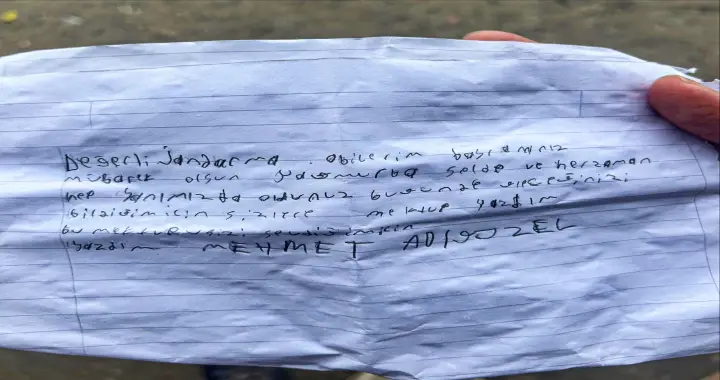 Değerli Jandarma abilerim bayramınız
mübarek olsun yağmurda selde ve herzaman
hep yanımızda oldunuz bugünde
bildiğim için sizlere mektup yazdım
bu mektubu sizi sevdiğim için
yazdım MEHMET ADIGÜZEL